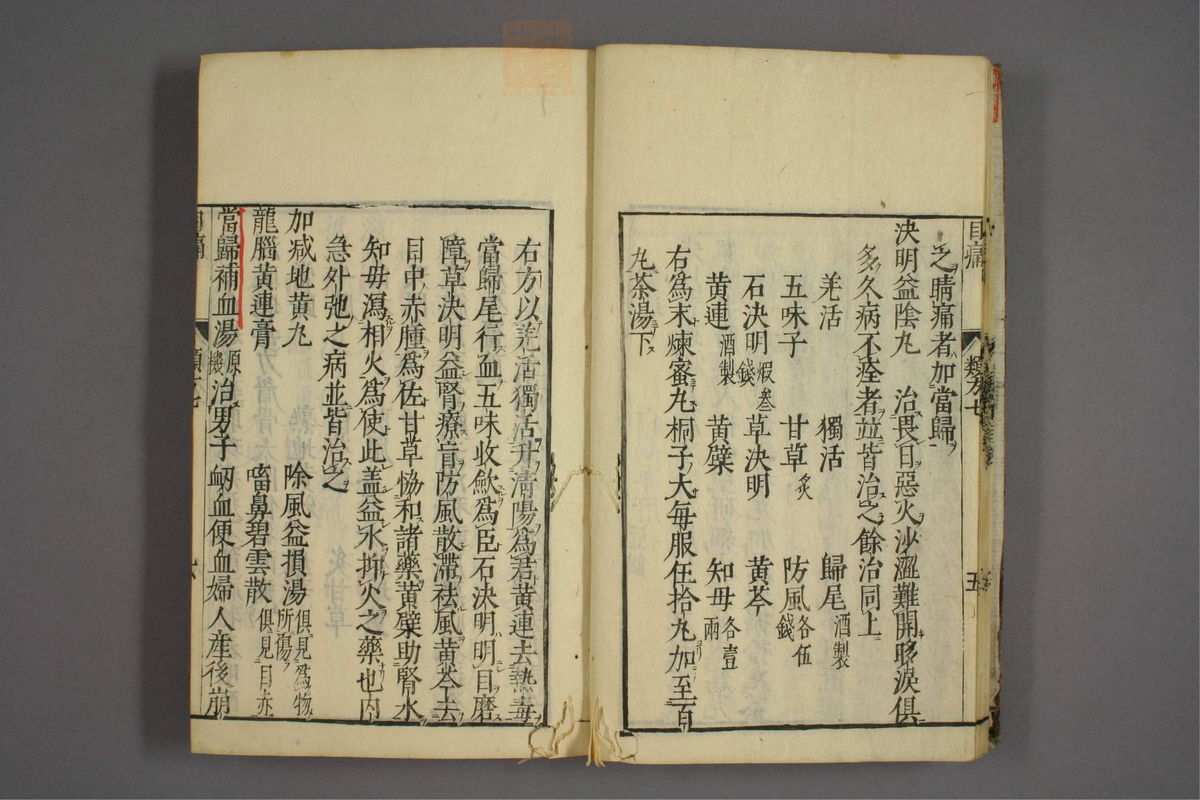 目痛 類方七 五
乏睛痛者加當歸
決明益陰丸 治畏日惡火沙澀難開眵淚俱
多久病不痊者並皆治之餘治同上
羌活 獨活 歸尾酒製
五味子 甘草炙 防風各伍錢
石決明煆叁錢 草決明 黄芩
黄連酒製 黄蘗 知毋各壹兩
右爲末煉蜜丸桐子大每服伍拾丸加至百
丸茶湯下
右方以羌活獨活升清陽爲君黄連去熱毒
當歸尾行血五味收斂爲臣石決明明目磨
障草決明益腎療盲防風散滯祛風黄芩去
目中赤腫爲佐甘草恊和諸藥黄蘗助腎水
知毋瀉相火爲使此盖益水抑火之藥也内
急外弛之病並皆治之
加减地黄丸 除風益損湯俱見爲物所傷
龍腦黄連膏 㗜鼻碧雲散俱見目赤
當歸補血湯原機治男子衂血便血婦人産後崩